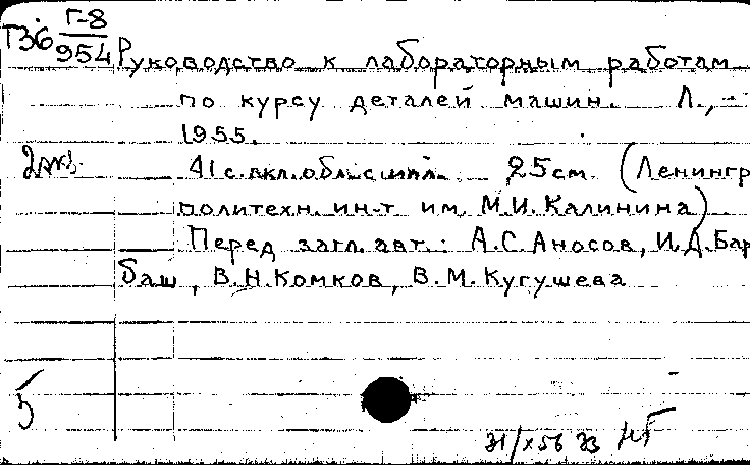 Г-8
Т36 954
Руководство к лабораторным работам
по курсу деталей машин. Л.,-
1955.
2экз. 41 с. вкл. обл. с илл. 25 см. (Ленингр
политехн. ин-т им. М.И. Калинина)
Перед загл. авт.: А.С. Аносов, И.Д. Бар
баш, В.Н. Комков, В.М. Кугушева
5
31/X 56